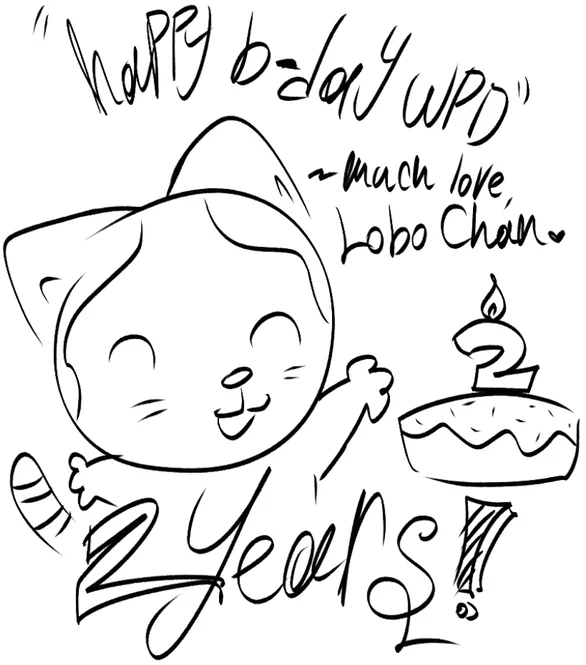 "happy b-day WPD"
~much love,
Lobo Chan.
2
2 Years!